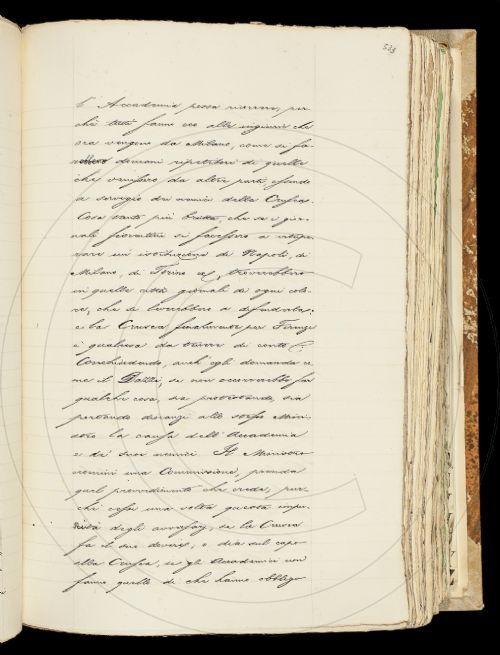 533
l'Accademia possa ricorrere, per-
chè tutti fanno eco alle ingiurie che
ora vengono da Milano, come si fa-
rebbero domani ripetitori di quelle
che venissero da altre parti essendo
a servigio dei nemici della Crusca.
Cosa tanto più brutta, che se i gior-
nali fiorentini si facessero a vitupe-
rare un'istituzione di Napoli, di
Milano, di Torino ec., troverebbero
in quelle città giornali di ogni colo-
re, che si leverebbero a difenderla:
e la Crusca finalmente per Firenze
è qualcosa da tenere di conto!
Conchiudendo, anch'egli domanda co-
me il Dazzi, se non occorrerebbe far
qualche cosa, sia protestando, sia
portando dinanzi allo stesso Mini-
stro la causa dell'Accademia
e de' suoi nemici. Il Ministro
nomini una Commissione, prenda
quel provvedimento che creda, pur-
chè cessi una volta questa
degli, se la Crusca
fa il suo dovere, o dia sul capo
alla Crusca, se gli Accademici non
fanno quello di che hanno obbligo